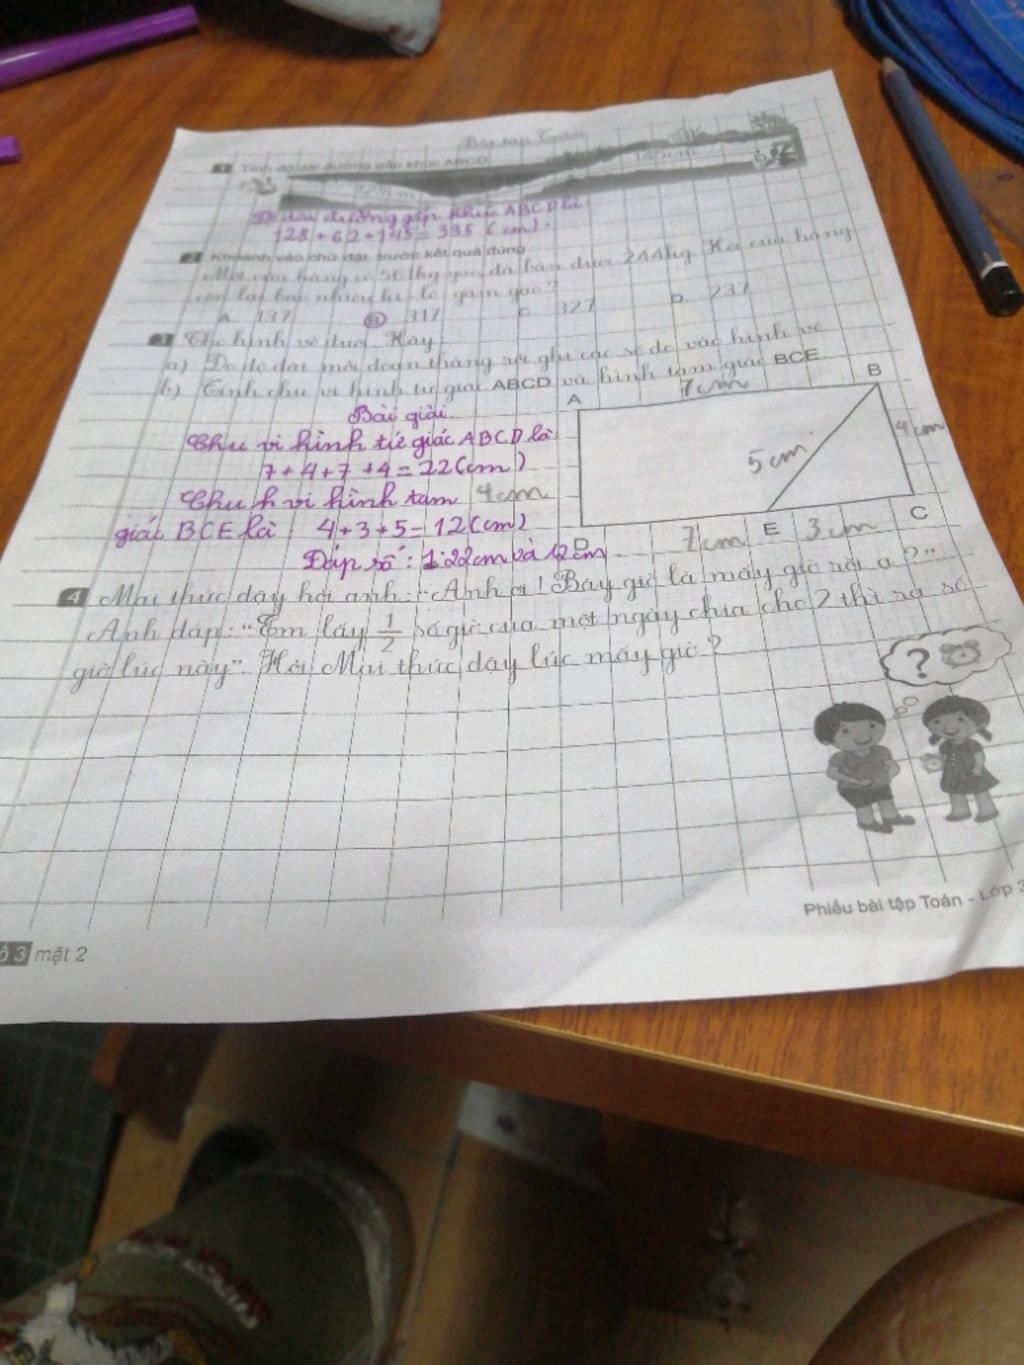 Bài tập Toán
1 Tính độ dài đường gấp khúc ABCD
145cm
Độ dài đường gấp khúc ABCD là:
128 + 62 + 145 = 335 (cm).
2 Khoanh vào chữ đặt trước kết quả đúng
Một cửa hàng có 561kg gạo, đã bán được 244kg. Hỏi cửa hàng
còn lại bao nhiêu ki-lô-gam gạo?
A. 137 B 317 C. 327 D. 237
3 Cho hình vẽ dưới. Hãy:
a) Đo độ dài mỗi đoạn thẳng rồi ghi các số đo vào hình vẽ
b) Tính chu vi hình tứ giác ABCD và hình tam giác BCE
A 7cm B
Bài giải
Chu vi hình tứ giác ABCD là:
7 + 4 + 7 + 4 = 22 (cm)
Chu vi hình tam
giác BCE là: 4 + 3 + 5 = 12 (cm)
Đáp số: 22cm và 12cm
4cm
5cm
4cm
D 7cm E 3cm C
4 Mai thức dậy hỏi anh: "Anh ơi! Bây giờ là mấy giờ rồi ạ?"
Anh đáp: "Em lấy 1/2 số giờ của một ngày chia cho 2 thì ra số
giờ lúc này". Hỏi Mai thức dậy lúc mấy giờ?
?
Phiếu bài tập Toán - Lớp 3
ố 3 mặt 2